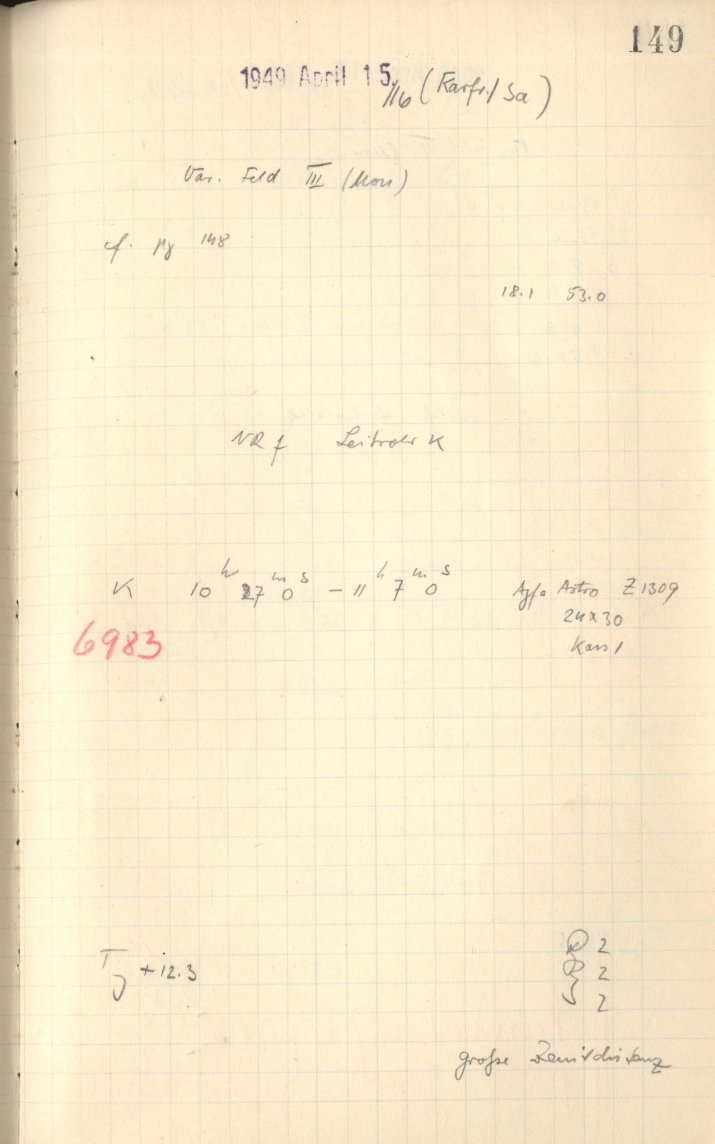 149
1949 April 15. /16 (Karfr./Sa)
Var. Feld III (Mon)
cf. pg 148
18.1 53.0
NR f Leitrohr K
K 10h 27m 0s – 11h 7m 0s Agfa Astro Z1309
24x30
Kass 1
6983
T + 12.3
2
R 2
S 2
große Zenitdistanz